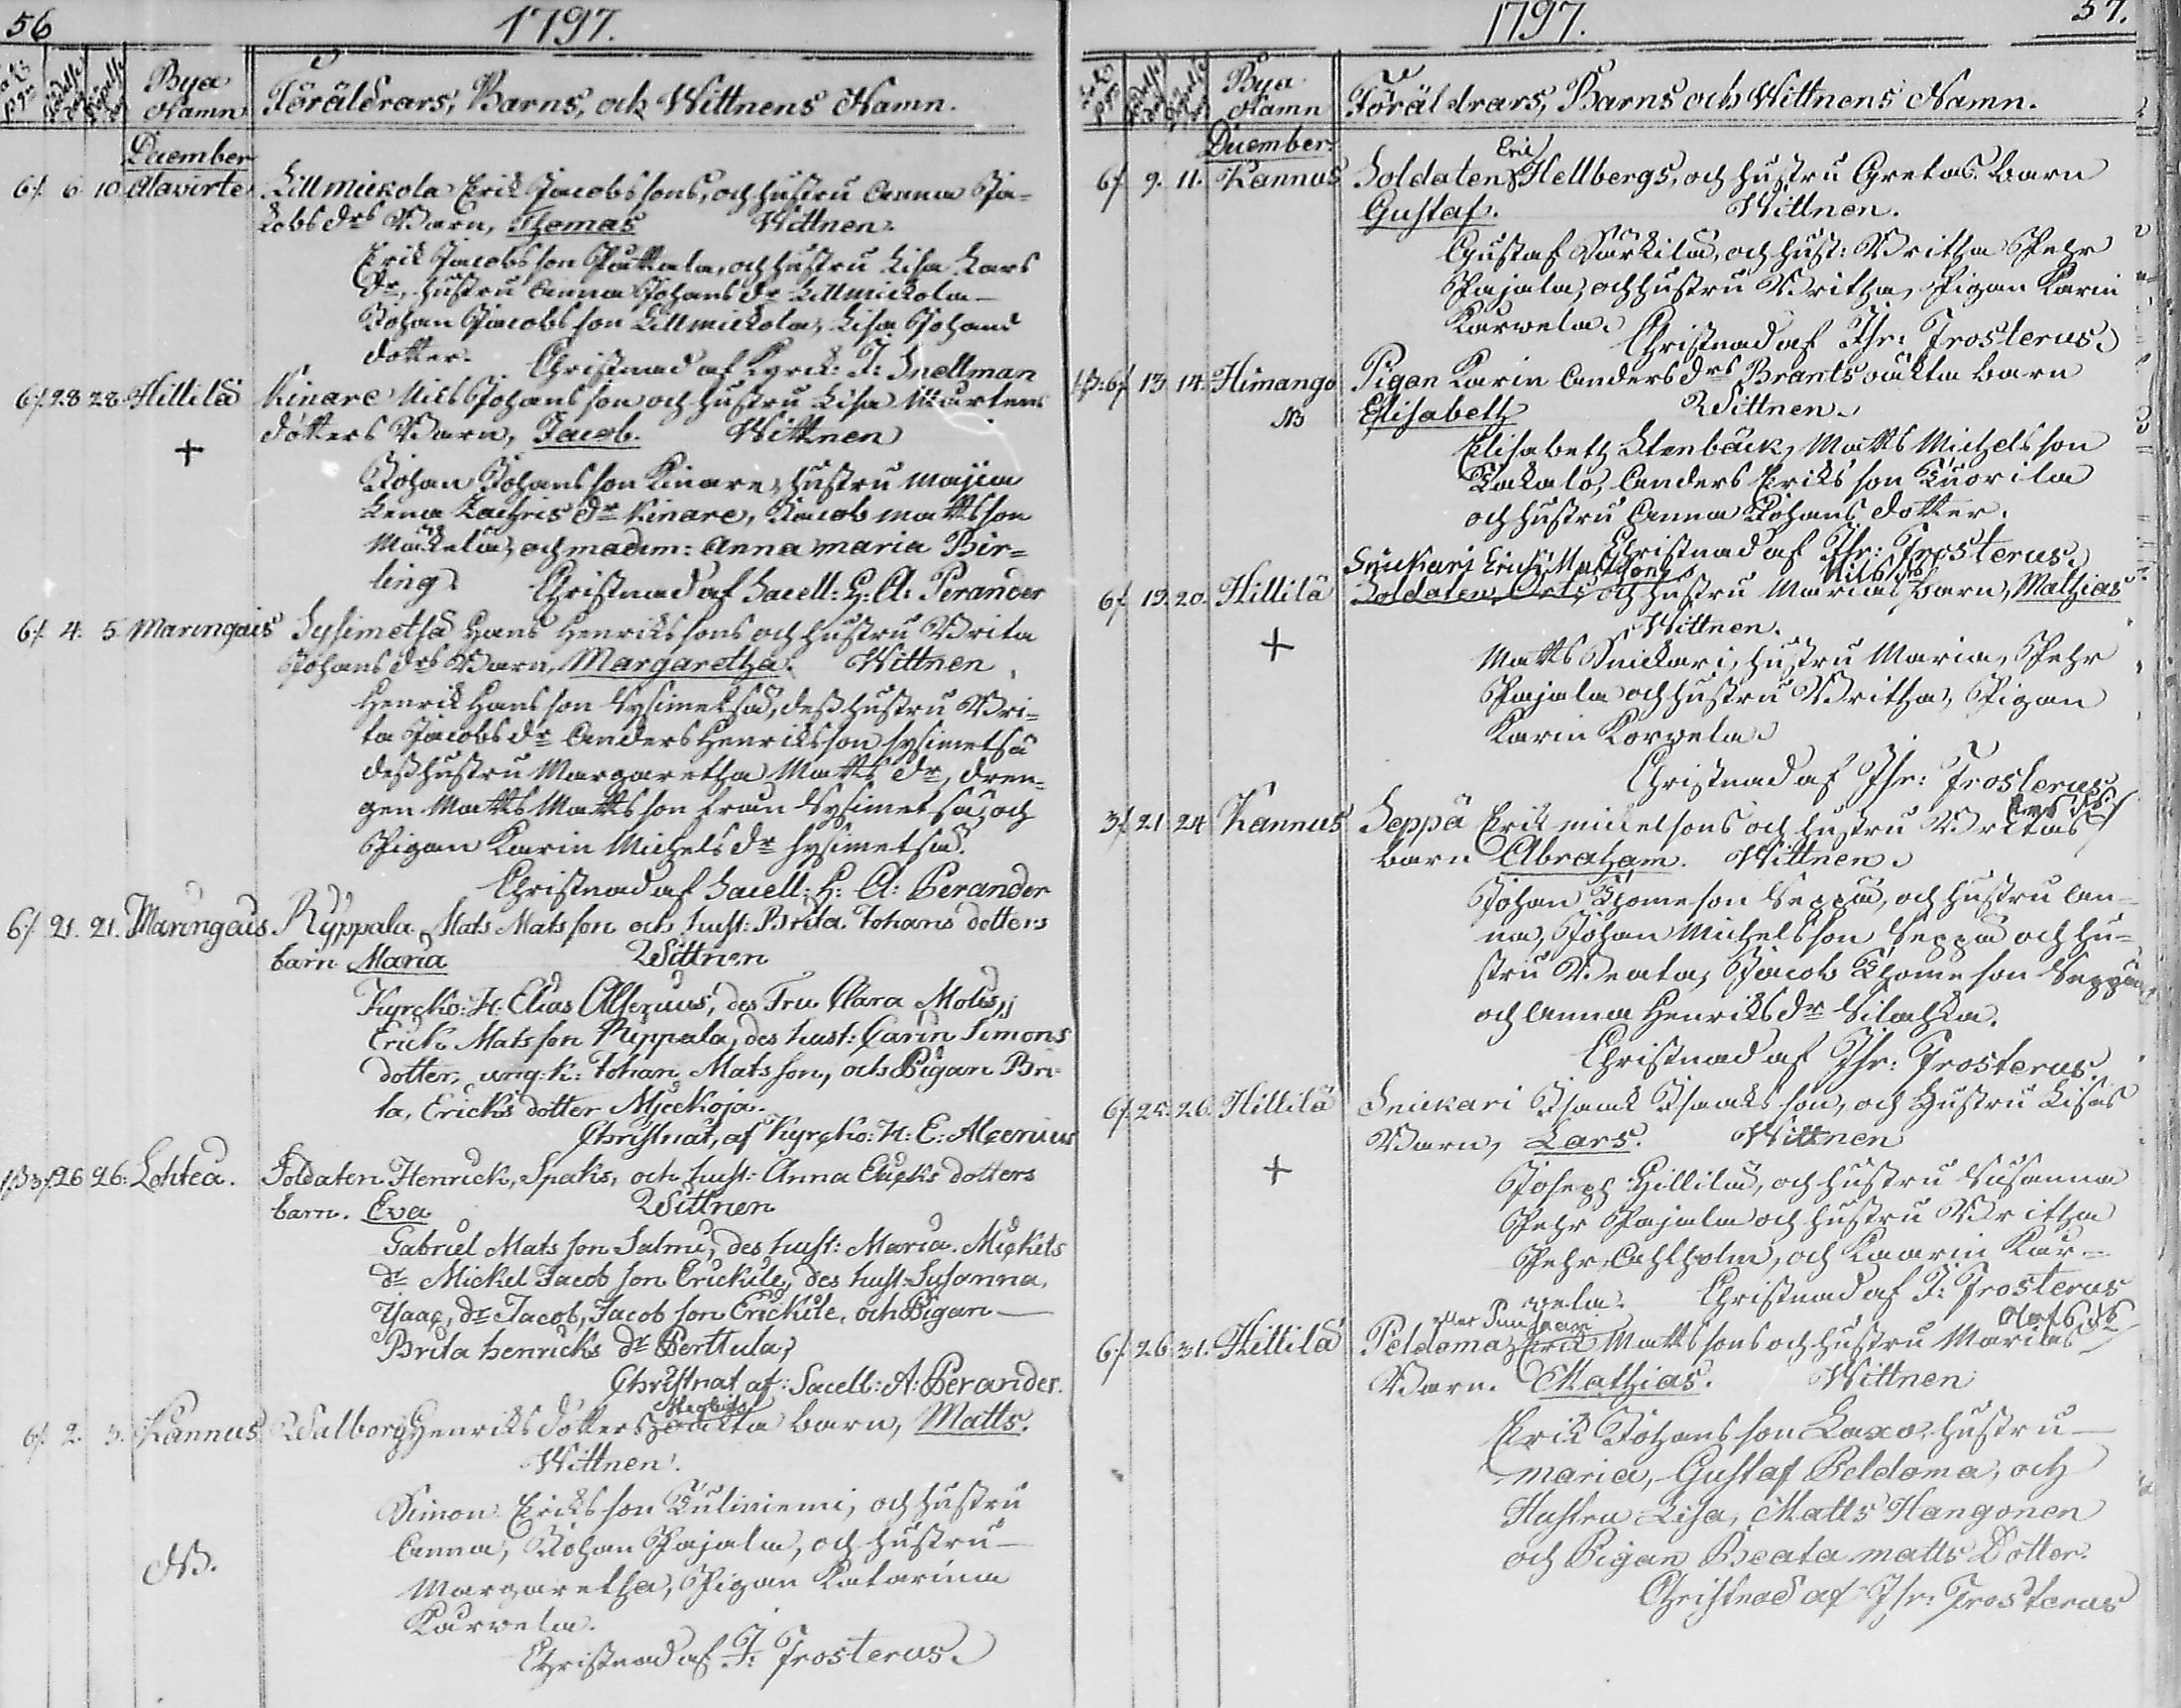 56
1797.
Födelse dag
Döpelse dag
Bya Namn
Föräldrars, Barns, och Wittnens Namn.
December
6/. 6 10. Alavirte Lillmickola Erik Jacobssons, och hustru Anna Ja-
kobs drs Barn, Thomas Wittnen.
Erik Jacobsson Puttala, och hustru Lisa Lars
dr, hustru Anna Johans dr Lillmickola
Johan Jacobsson Lillmickola, Lisa Johans
dotter. Christnad af Kyrck: J: Snellman
6/. 28 28. Hillilä Kinare Nils Johansson och hustru Lisa Mårtens
+
dotters Barn, Jacob. Wittnen
Johan Johansson Kinare, hustru Majsa
Lena Zachris dr Kinare, Jacob Mattsson
Mäkelä, och madm: Anna Maria Bir=
ling. Christnad af Sacell: H: A: Perander
6/. 4. 5. Maringais Sysimetsä Hans Henrikssons och hustru Brita
Johans drs Barn, Margaretha. Wittnen
Henrik Hansson Sysimetsä, dess hustru Bri=
ta Jacobs dr Anders Henriksson Sysimetsä
dess hustru Margaretha Matts dr, dren-
gen Matts Mattsson från Sysimetsä, och
Pigan Karin Michels dr Sysimetsä.
Christnad af Sacell: H: A: Perander
6/. 21. 21. Maringais Ryppala Mats Matsson och hust: Brita Johans dotters
barn Maria Wittnen
Kyrcko: H: Elias Alcenius, des Fru Clara Molis,
Erick Matsson Ryppala, des hust: Carin Simons
dotter, ung: k: Johan Matsson, och Pigan Bri-
ta, Ericks dotter Myckoja.
Christnat, af Kyrcko: H: E: Alcenius
26 26. Lohtea. Soldaten Henrick, Spaks, och hust: Anna Ericks dotters
barn. Eva Wittnen
Gabriel Matsson Salmi, des hust: Maria. Mickels
dr Mickel Jacobson Erickile, des hust: Susanna,
Ysaac, dr Jacob, Jacobson Erickile, och Pigan
Brita henricks dr Perttula,
Christnat af: Sacell: A: Perander.
6/. 2. 3. Kannus Walborg Henriks dotters oäkta barn, Matts.
Wittnen.
NB.
Simon Eriksson Kuliniemi, och hustru
Anna, Johan Pajala, och hustru
Margaretha, Pigan Katarina
Karvela.
Christnad af J: Trosterus.
57.
1797.
Bya Namn
Föräldrars, Barns och Wittnens Namn.
December.
Eric
6/. 9. 11. Kannus Soldaten Hellbergs, och hustru Gretas Barn
Gustaf. Wittnen.
Gustaf Särkilä, och hust: Britha Pehr
Pajala, och hustru Britha, Pigan Karin
Karvela. Christnad af Jhr: Trosterus.
13. 14. Himango Pigan Karin Anders drs Brants oäkta barn
NB
Elisabeth Wittnen.
Elisabeth Stenbäck, Matts Michelsson
Kakalo, Anders Eriksson Kuorila
och hustru Anna Johans dotter.
Christnad af Jhr: Trosterus.
Snickari Erich Matssons
Nils drs
6/. 19. 20. Hillilä Soldaten Orts, och hustru Marias barn, Mathias
Wittnen.
+
Matts Snickari, hustru Maria, Pehr
Pajala och hustru Britha, Pigan
Karin Korvela.
Christnad af Jhr: Trosterus
3/. 21 24 Kannus Seppä Erik Mickelsons och hustru Britas
barn Abraham. Wittnen.
Johan Thomeson Seppä, och hustru An-
na, Johan Michelsson Seppä och hu-
stru Beata, Jacob Thomeson Seppä
och Anna Henriks dr Silahka.
Christnad af Jhr: Trosterus.
6/. 25. 26. Hillilä Snickari Isaack Isaacksson, och Hustru Lisas
Barn, Lars. Wittnen
+
Joseph Hillilä, och hustru Susanna
Pehr Pajala och hustru Britha
Pehr Cahlholm, och Kaarin Kar-
vela. Christnad af J: Trosterus
Olofs drs
6/. 26. 31. Hillilä Peldoma Eric Mattssons och hustru Marias
Barn. Mathias. Wittnen
Erik Johansson Laxo, hustru
Maria, Gustaf Peldoma, och
Hustru Lisa, Matts Hangonen
och Pigan Beata Matts Dotter.
Christnad af Jhr: Trosterus